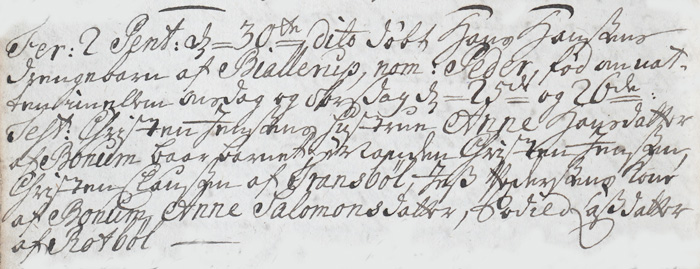 Fer: 2 Pent: d = 30te dito döbt Hans Hansens
drengebarn af Biallerup, nom: Peder, fød om nat-
ten imellem onsdag og torsdag d = 25de og 26de:
Test: Christen Jensens Hustrue, Anne Hansdatter
af Bonum baar barnet, Christen Jensen,
Christen Clausen af Gransböl, Jess Pedersens kone
af Bonum, Anne Salomonsdatter, Bodied Lassdatter
af Rotböl